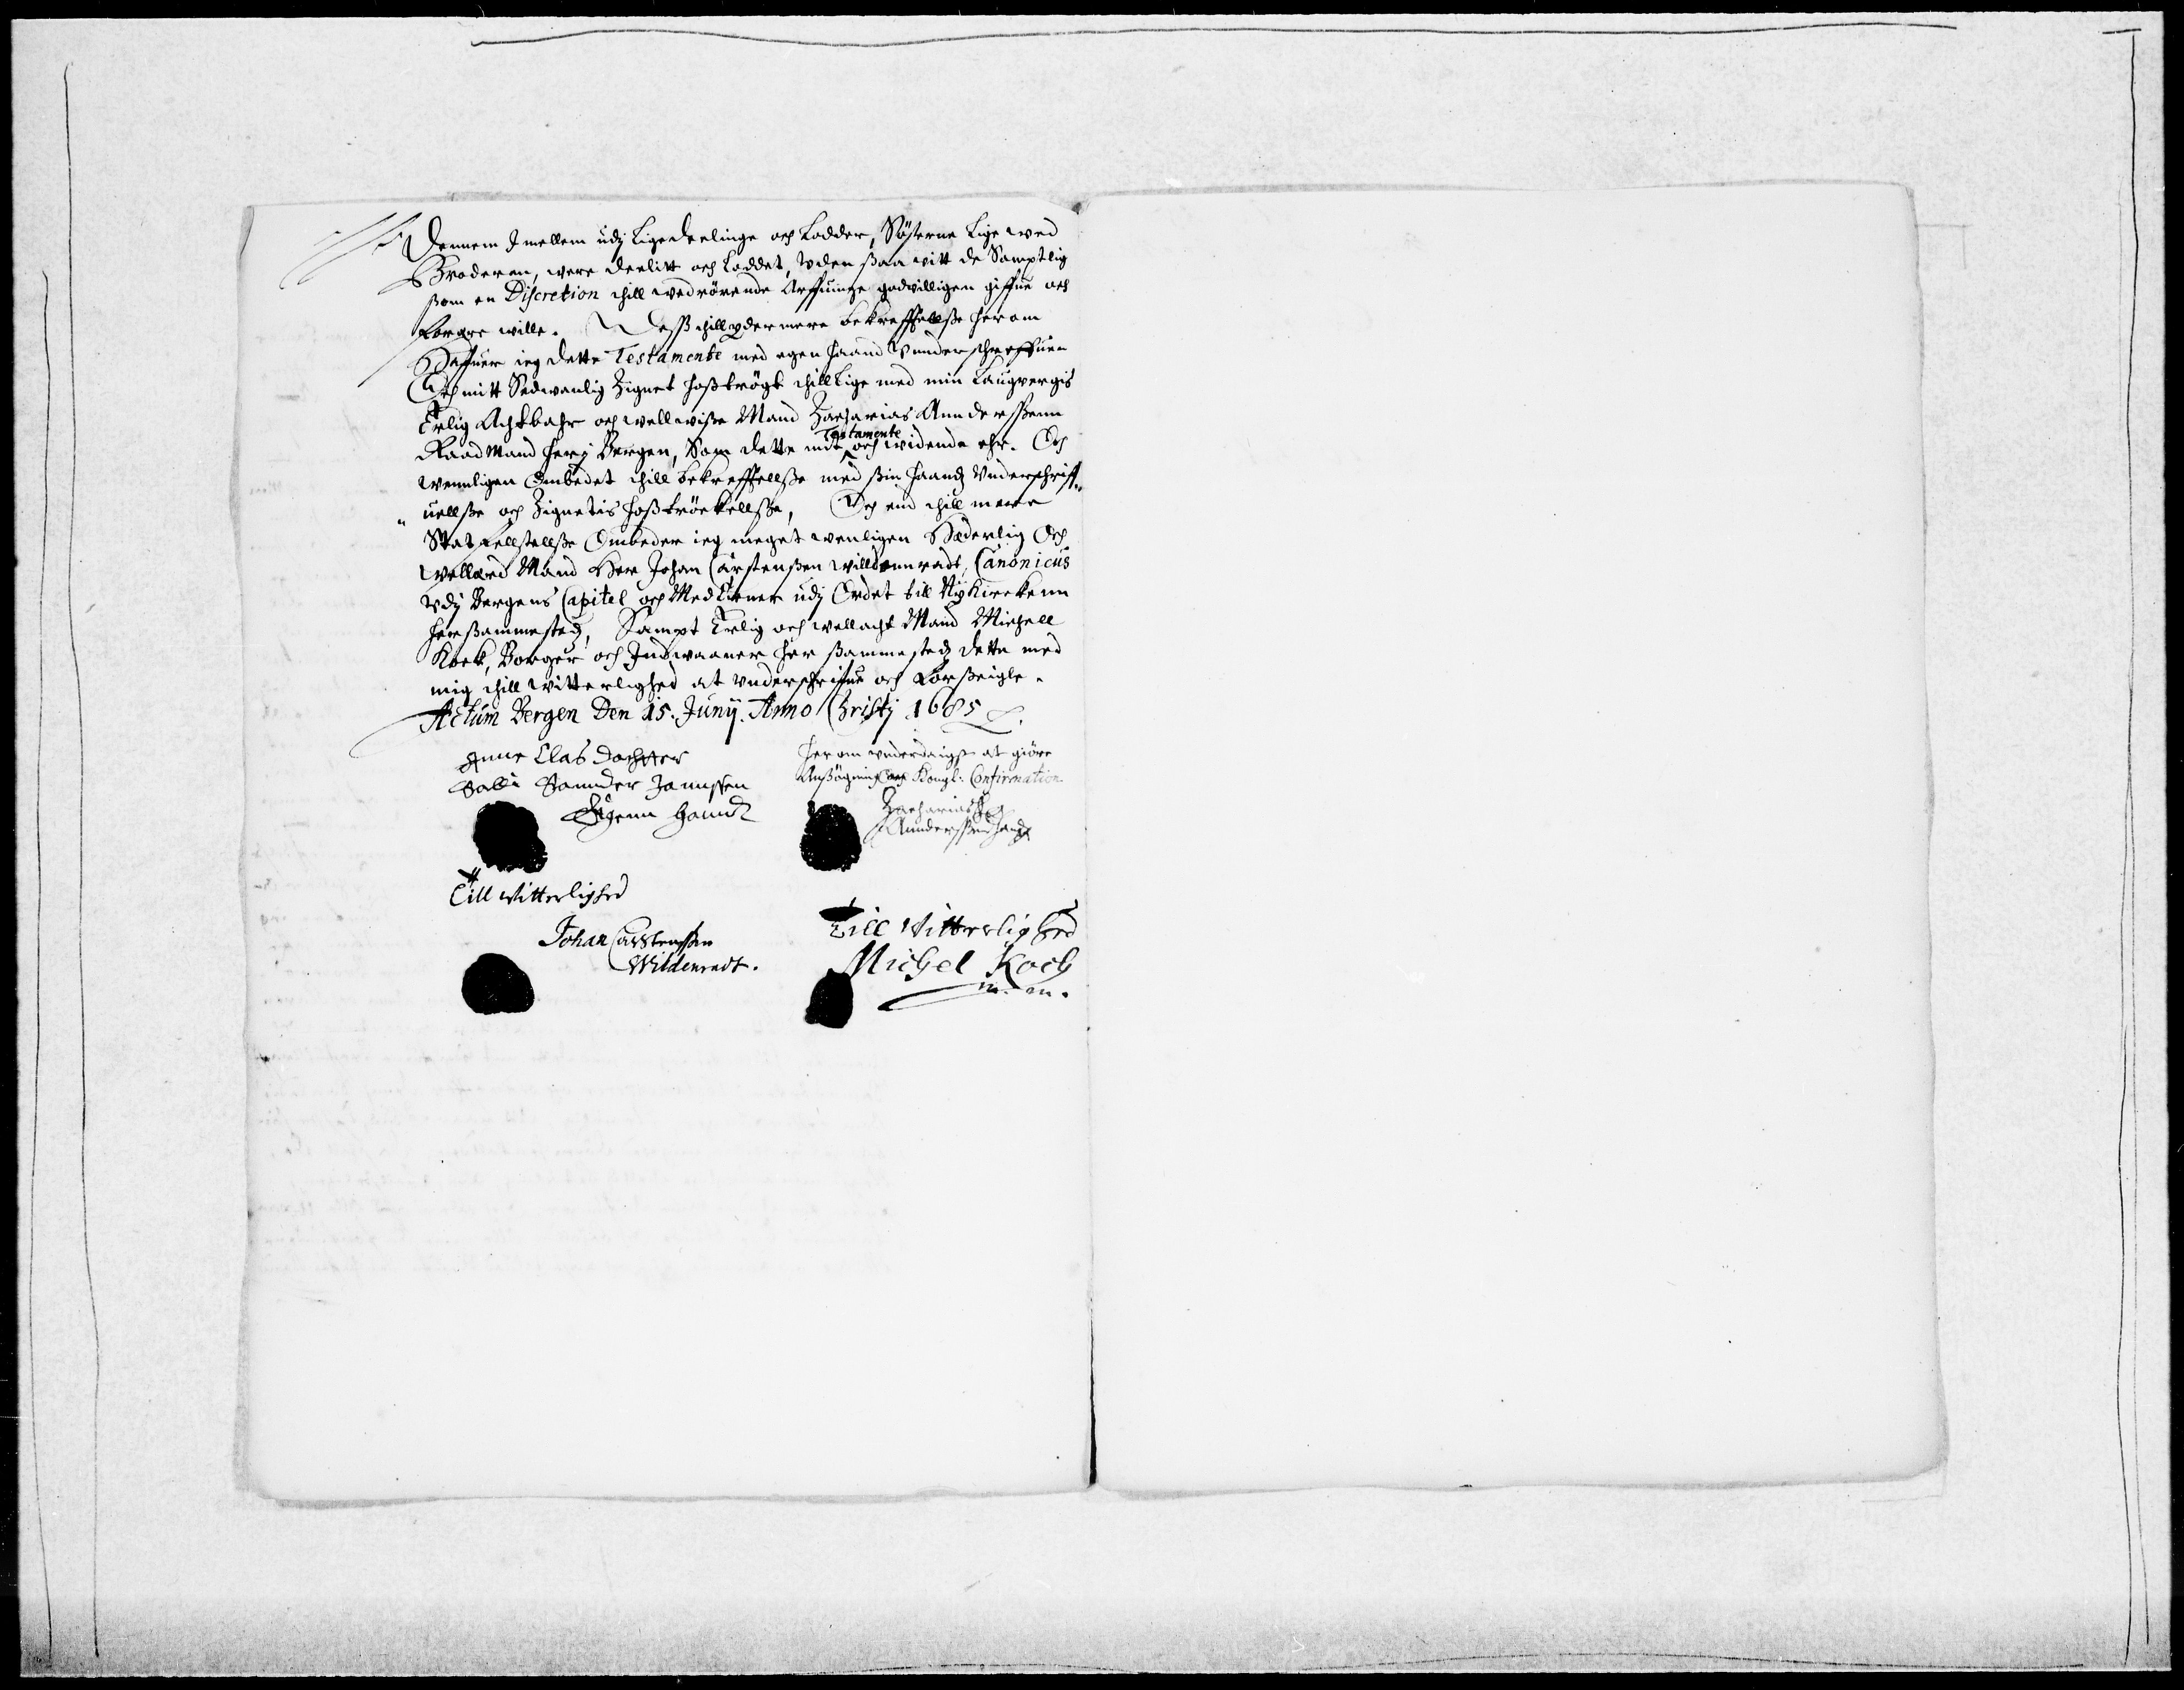 Dennem Jmellem udj Ligedeelinge och Lodder, Søsterne Lige wed
Broderen, were deelitt och loddet, Uden saa witt de Samptlig
som en Discretion thill wedrørende Arffuinge godwilligen giffue och
forære wille. Dess thill ydermere bekreffellsse herom
Haffuer ieg dette Testamente med egen haand Underschreffuen
Och mitt Sedwanlig Zignet hosstrøgt thillLige med min Laugvergis
Erlig Achtbahr och wellwisse Mand Zacharias Anderssenn
Raadmand herj Bergen, Som dette mit Testamente och widende ehr. Och
wennligen Ombedet thill bekreffellsse med sin haandz Underschriff„
„uellsse och Zignetis hosstrøckellsse, Och end thill mere
Statfestellsse Ombeder ieg meget wenligen Hæderlig Och
wellærd Mand Her Johan Carstenssen willdennradt, Canonicus
Udj Bergens Capitel och MedTiener udj Ordet till Nykirckenn
her sammestedz, Sampt Erlig och wellacht Mand Michell
Kock, Borger och Indwaaner her sammestedz dette med
mig thill Witterlighed at underschriffue och forseigle.
Actum Bergen Den 15. Junÿ. Anno Christj 1685
Anne Clas Dochter
Sander Janssen
Egenn Handt
her om underdanigst at giøre
Ansøgning Kongl: Confirmation
Zacharias
Anderssen hand
Till Witterlighed
Johan Carstenssen
Wildenradt.
Till Witterlighed
Michel Koch
m. m.